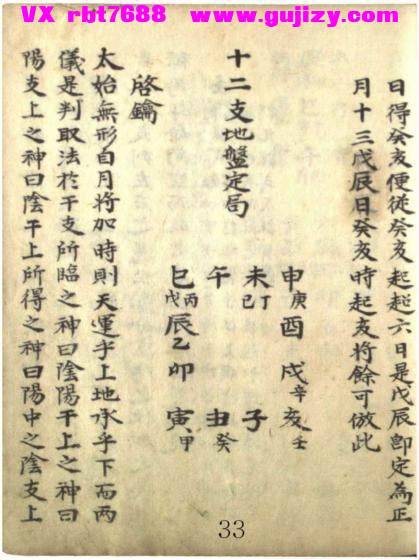 VX rbt7688 www.gujizy.com
日得癸亥便從癸亥起超六日是戊辰即定為正
月十三戊辰日癸亥時起亥將餘可倣此
十二支地盤定局
申庚酉戌辛亥壬
未丁己子
午丑癸
巳丙戊辰乙卯寅甲
啓鑰
太始無形自月將加時則天運乎上地承乎下而兩
儀是判取法於干支所臨之神曰陰陽干上之神曰
陽支上之神曰陰干上所得之神曰陽中之陰支上
33